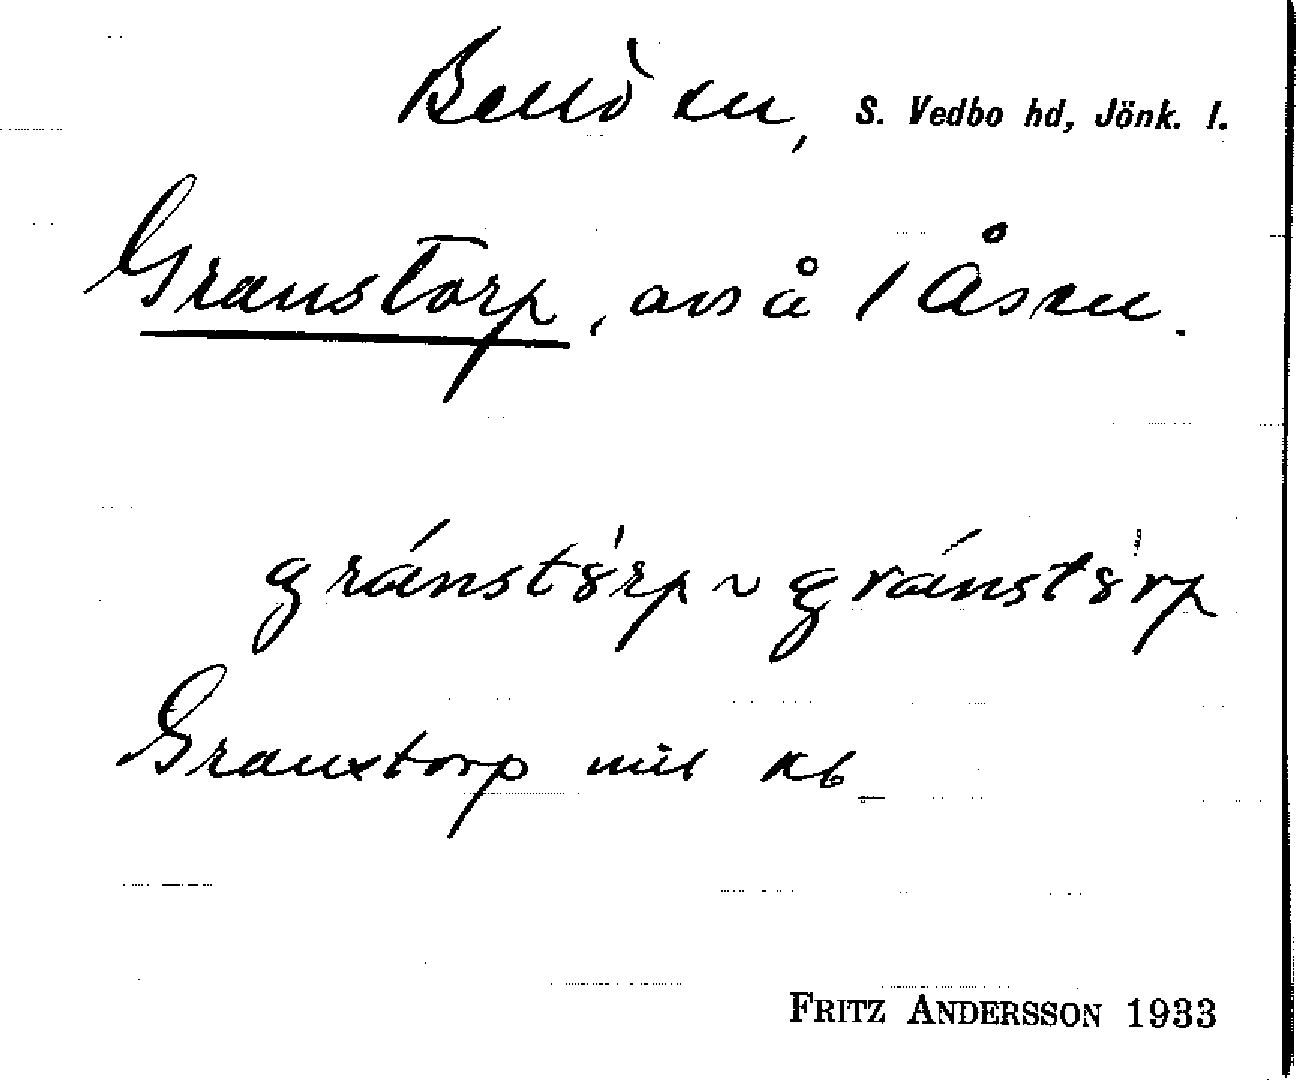 Bellö sn, S. Vedbo hd, Jönk. l.
Granstorp, avs å 1 Åsen.
gránstòrp ~ gránstòrp
Granxtorp mil kb
FRITZ ANDERSSON 1933